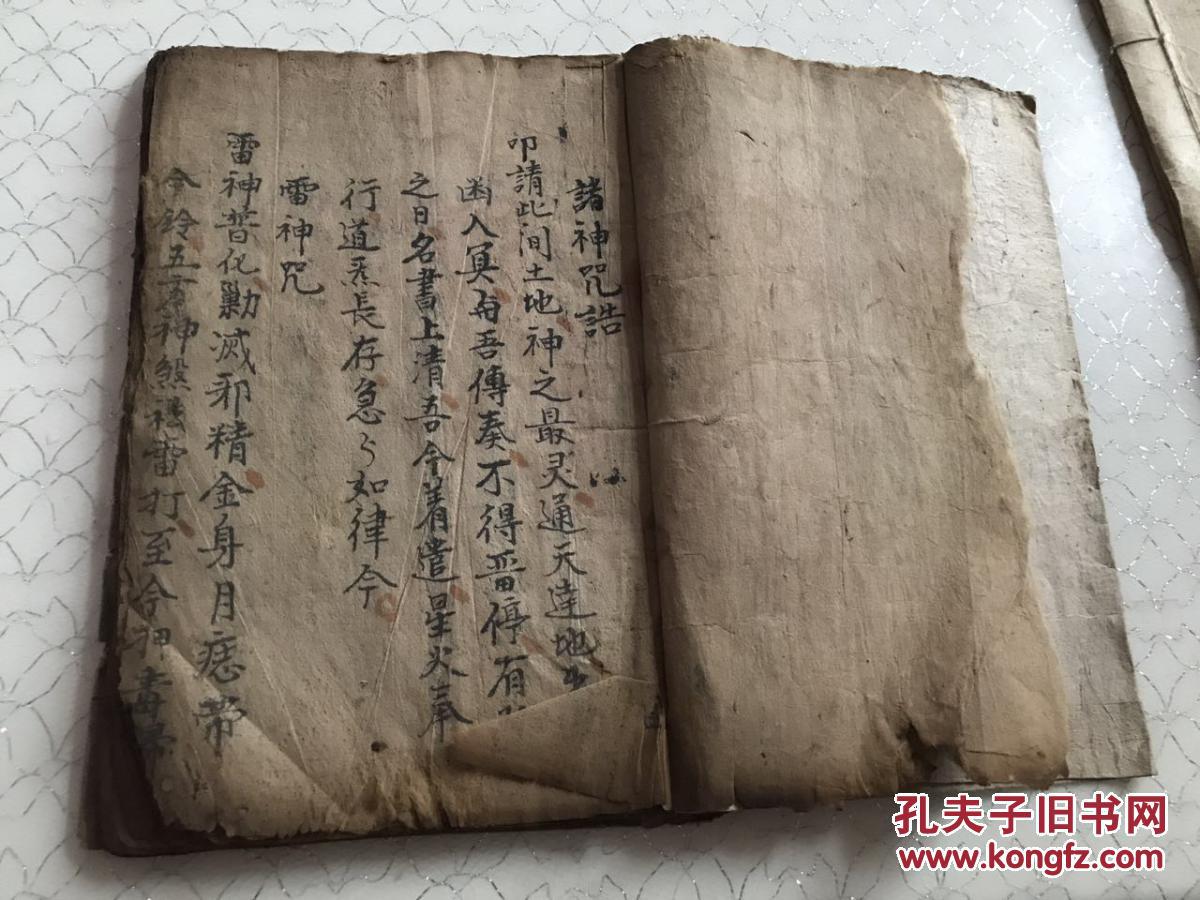 諸神咒誥
叩請此间土地神之最灵通天達地出
函入冥与吾傳奏不得畱停有
之日名書上清吾今着遣星火奉
行道炁長存急々如律令
雷神咒
雷神普化勦滅邪精金身月痣带
令鈴五神煞雷打至令押毒
孔夫子旧书网
www.kongfz.com